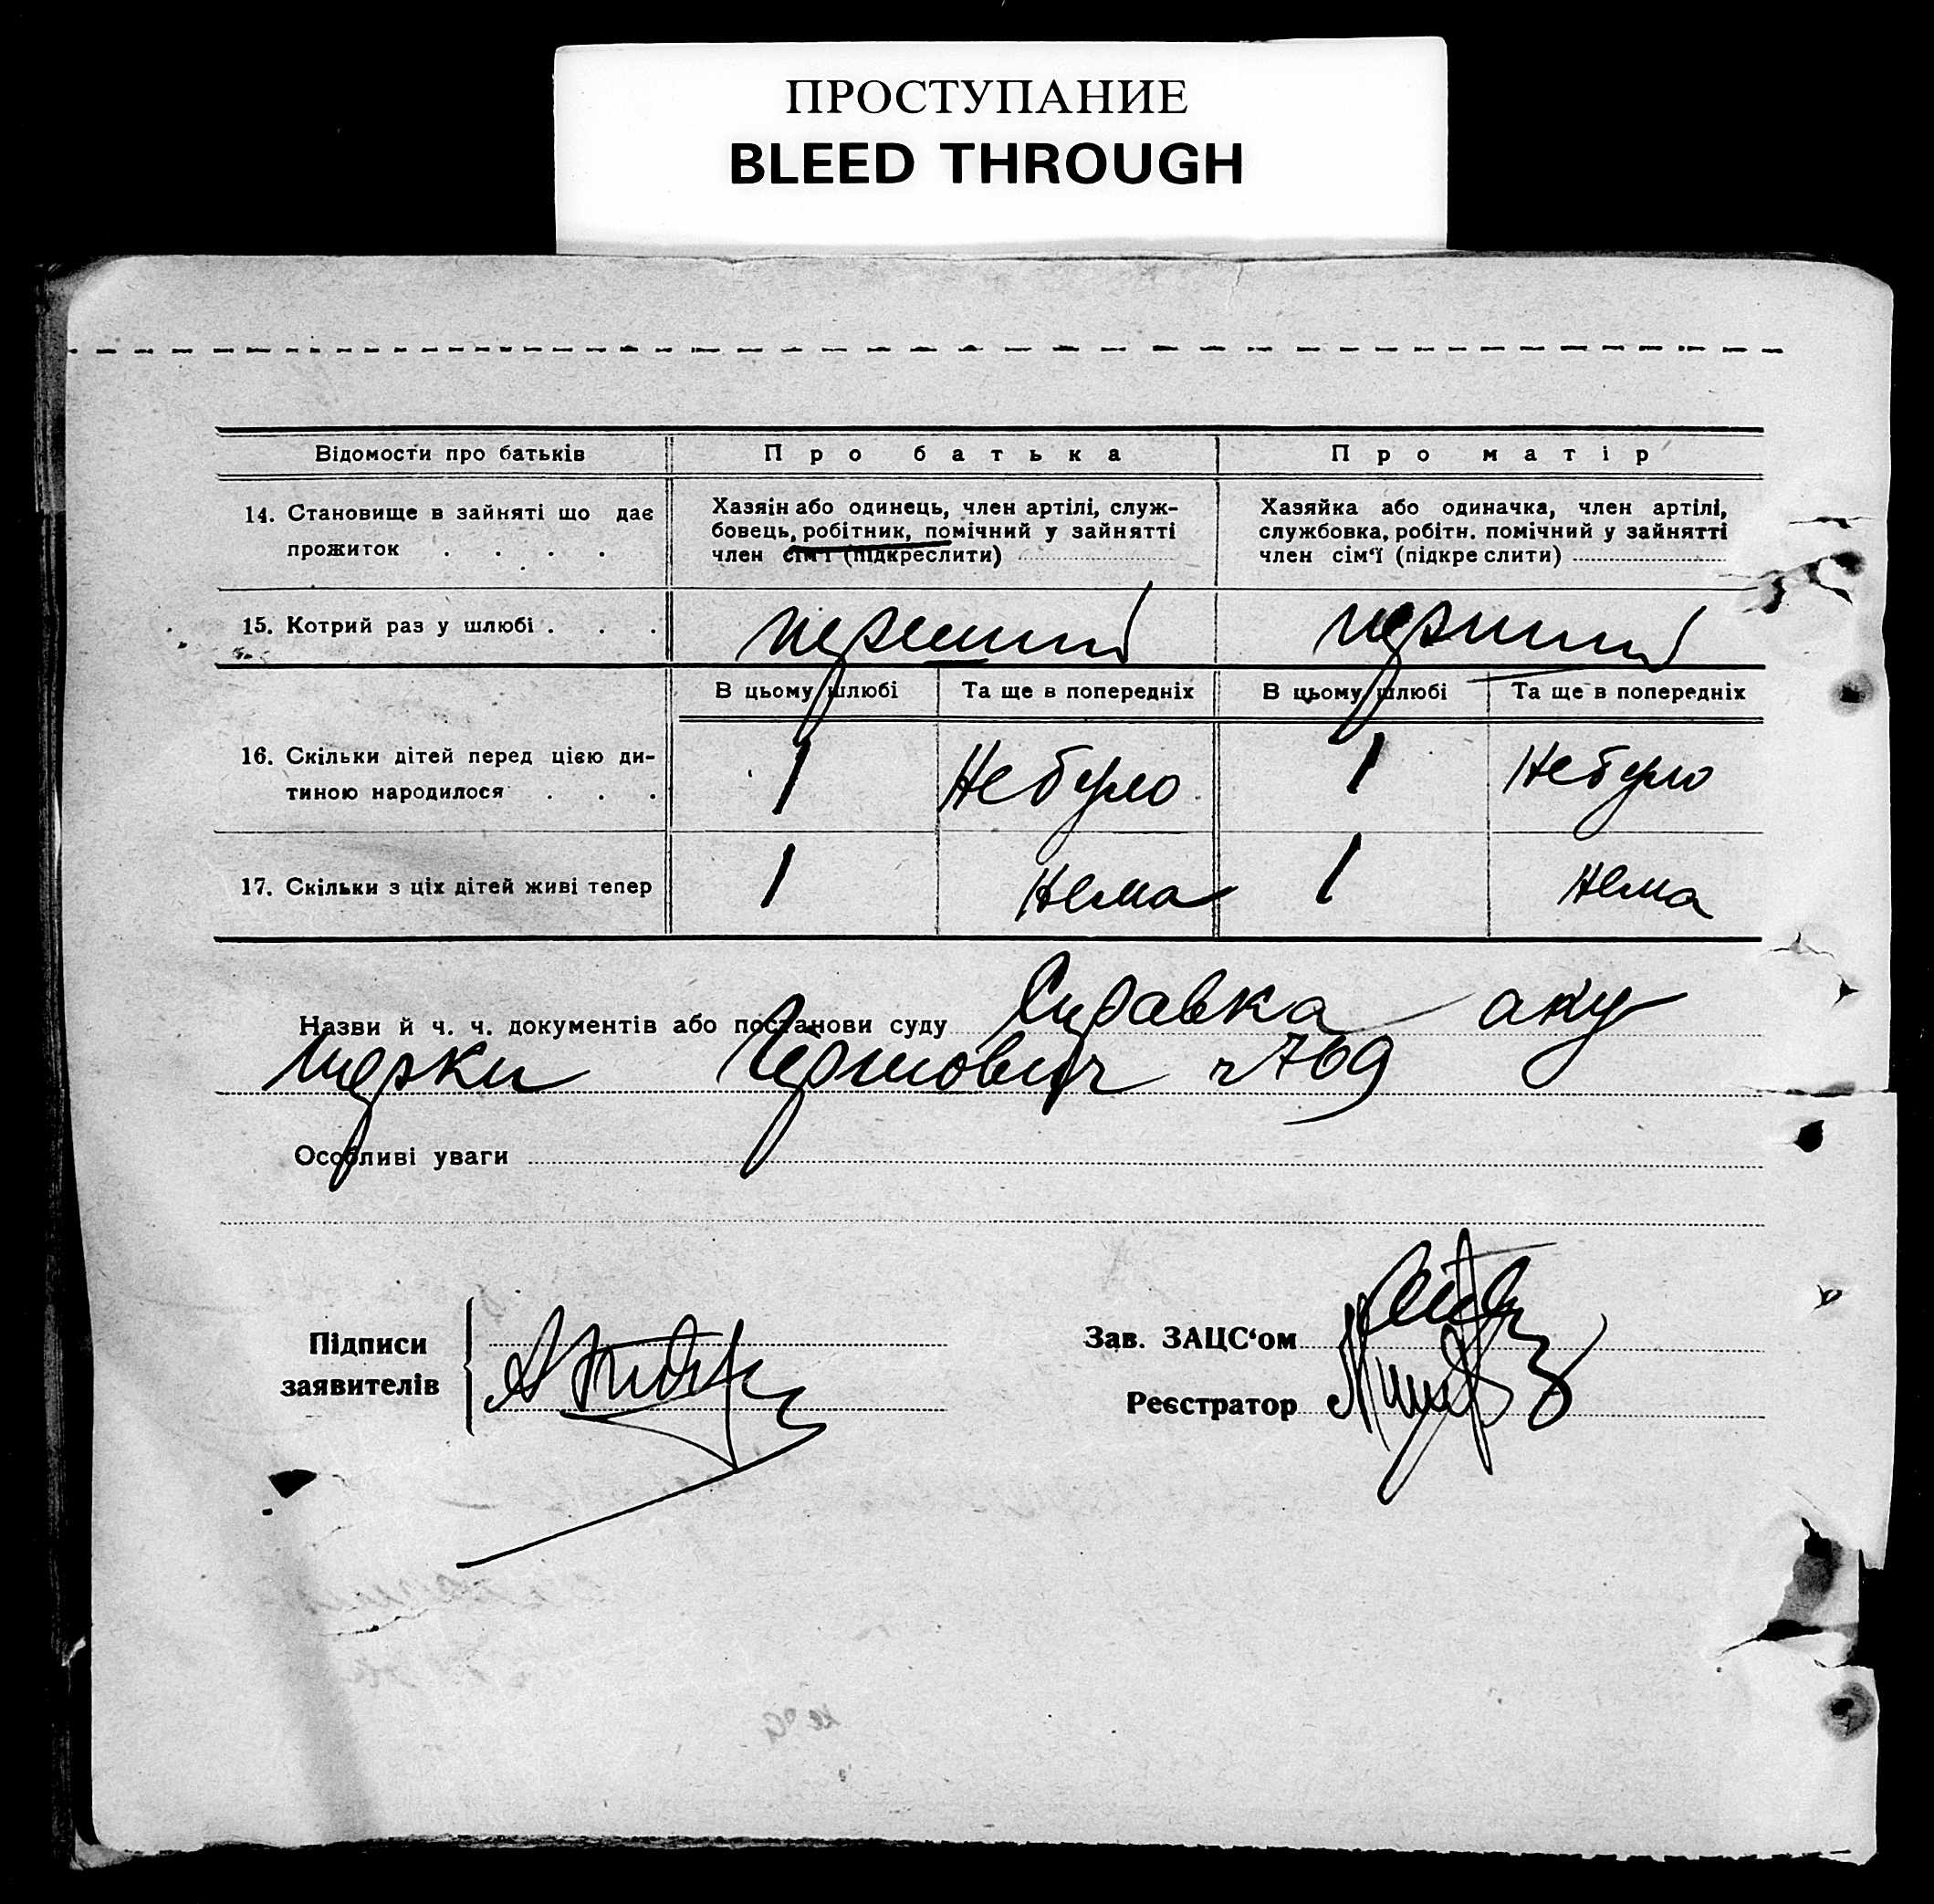 ПРОСТУПАНИЕ
BLEED THROUGH
Відомости про батьків
Про батька
Про матір
14. Становище в зайняті що дає
прожиток . . . .
Хазяін або одинець, член артілі, служ-
бовець, робітник, помічний у зайнятті
член сім'ї (підкреслити)
Хазяйка або одиначка, член артілі,
службовка, робітн. помічний у зайнятті
член сім'ї (підкреслити)
15. Котрий раз у шлюбі . . .
перший
перший
В цьому шлюбі
Та ще в попередніх
В цьому шлюбі
Та ще в попередніх
16. Скільки дітей перед цією ди-
тиною народилося . . .
1
Не було
1
Не було
17. Скільки з ціх дітей живі тепер
1
Нема
1
Нема
Назви й ч. ч. документів або постанови суду Справка аку
шерки ч 769
Особливі уваги
Підписи
заявителів
Зав. ЗАЦС'ом
Реєстратор